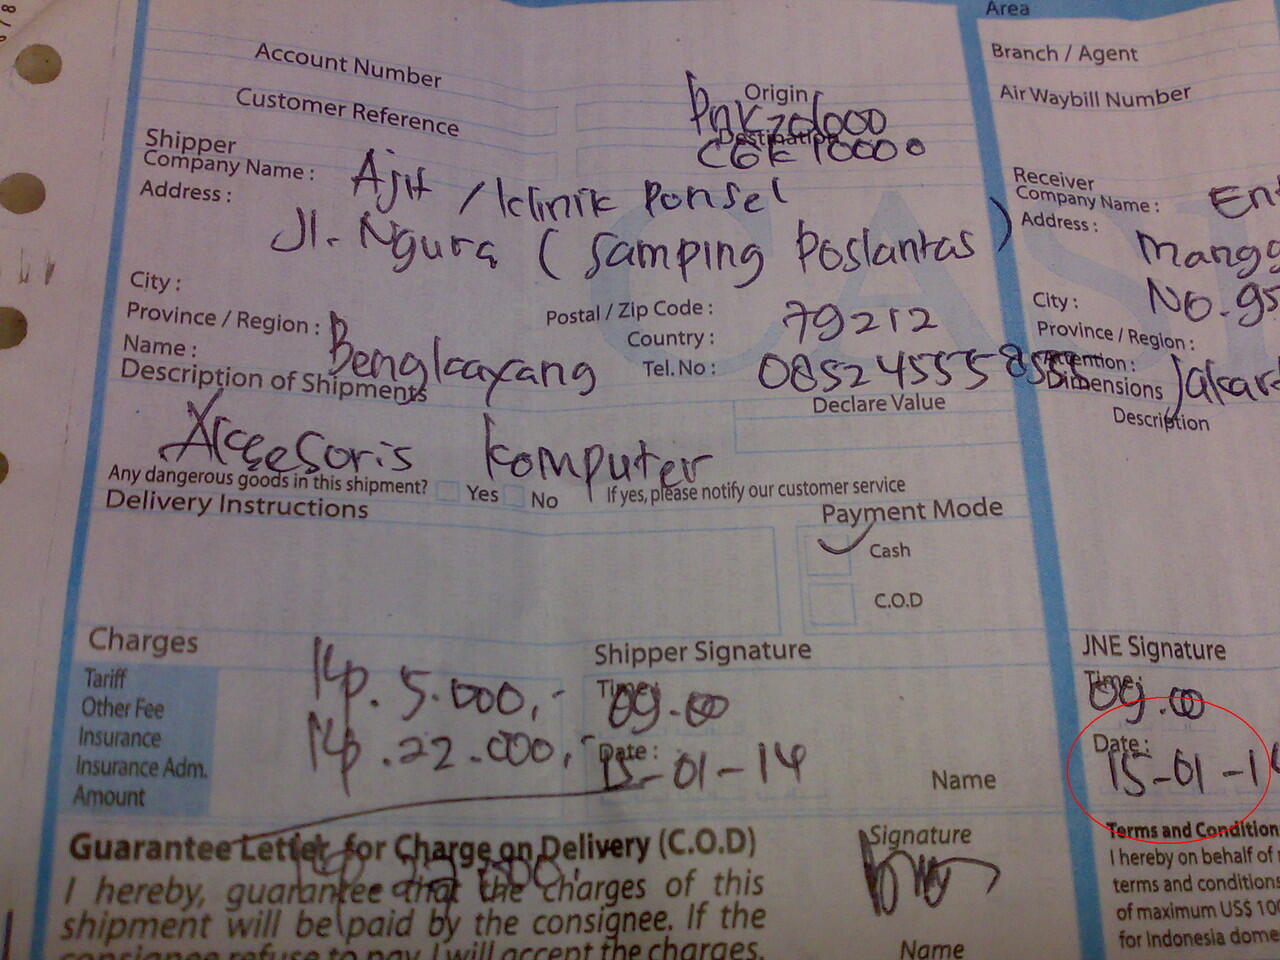 Area
Account Number
Branch / Agent
Customer Reference
Origin
Pnkzd1000
Air Waybill Number
Destination
CGK 10000
Shipper
Company Name : Ajit / klinik Ponsel
Address :
Jl. Ngura ( Samping Poslantas )
City :
Province / Region : Bengkayang
Postal / Zip Code : 79212
Country :
Name :
Tel. No :
Description of Shipments
Accesoris komputer
Declare Value
Any dangerous goods in this shipment? Yes No If yes, please notify our customer service
Delivery Instructions
Payment Mode
Cash
C.O.D
Charges
Tariff
Other Fee
Insurance
Insurance Adm.
Amount
Rp. 5.000,-
Rp. 22.000,-
Shipper Signature
Time : 09.00
Date : 15-01-14
Name
Signature
Name
Guarantee Letter for Charge on Delivery (C.O.D)
I hereby, guarantee that the charges of this
shipment will be paid by the consignee. If the
consignee refuse to pay I will accept the charges.
Receiver
Company Name :
Address :
City : No. 95
Province / Region :
Attention :
Dimensions
Description
JNE Signature
Time : 09.00
Date : 15-01-1
Terms and Condition
I hereby on behalf of
terms and conditions
of maximum US$ 100
for Indonesia dome
CAS